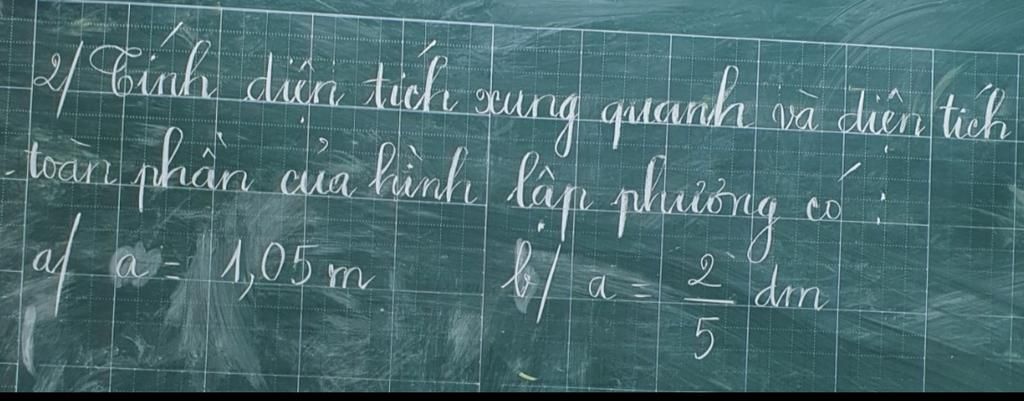 2/ Tính diện tích xung quanh và diện tích
toàn phần của hình lập phương có :
a/ a = 1,05 m b/ a = 2/5 dm